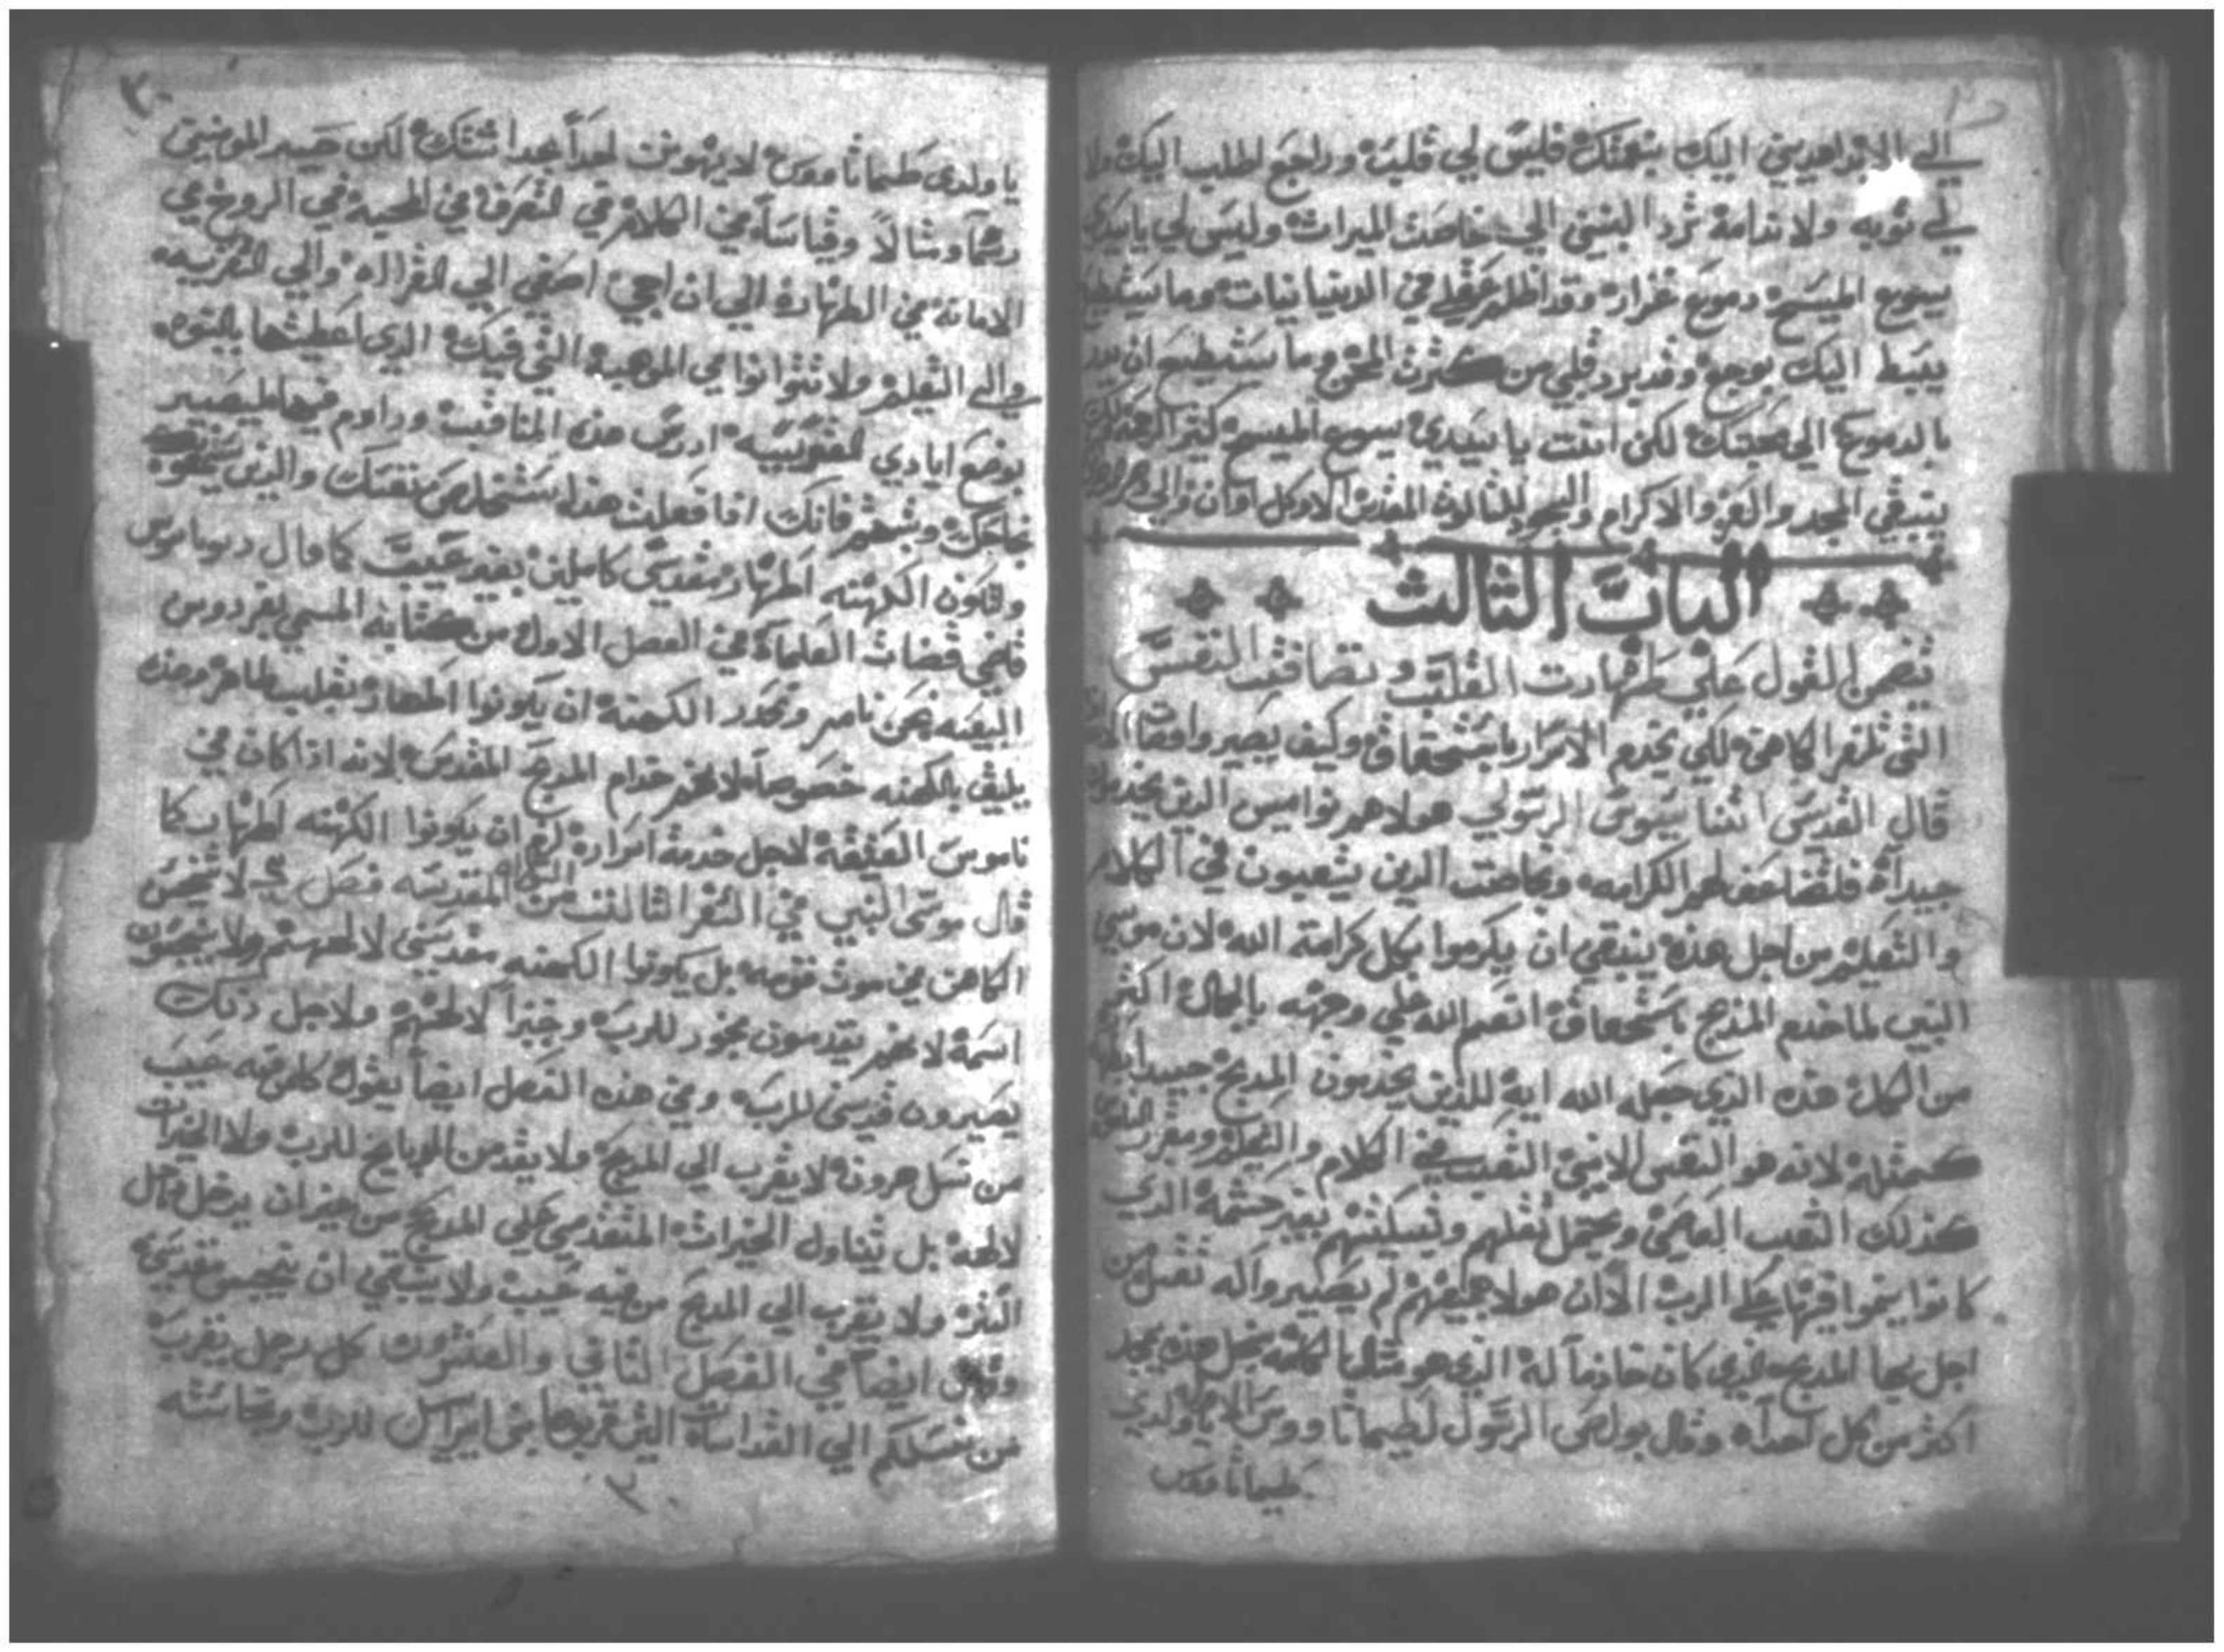 الي الابد اهديني اليك بنعمتك فليس لي قلب وراجع اطلب اليك ولا
لي توبه ولا ندامة ترد البنين الي خاصت الميراث وليس لي يا سيدي
يسوع المسيح دموع غزاره وقد اظلم عقلي في الدنيانيات وما يستطيع
يبسط اليك بوجع وقد برد قلبي من كثرت المحن وما يستطيع ان
بالدموع الي محبتك لكن انت يا سيدي يسوع المسيح كتير الرحمه لك
ينبغي المجد والعز والاكرام والسجود للتالوت المقدس الان وكل اوان والي دهر
الباب الثالث
تتضمن القول علي طهارت القلب و نضافت النفس
التي تلزم الكاهن لكي يخدم الاسرار باستحقاق وكيف يصير واقفا
قال القديس اتناسيوس الرسولي هولاهم نواميس الدين يخدمون
جيداً فلتضاعف لهم الكرامه وبخاصت الدين يتعبون في الكلام
والتعليم من اجل هذه ينبغي ان يكرموا بكل كرامة الله لان موسي
النبي لما خدم المذبح باستحقاق انعم الله علي وجهه بالجمال اكثر
من الكل هذه الذي جعله الله اية للذين يخدمون المذبح جيداً
كمثله لانه هو النفس للابنين التعب في الكلام والتعليم
كذلك التعب العاصي وحتمل تقلهم وتبكيتهم بغير حشمة الدي
كانوا يتموا فيها علي الرب الان هولا جميعهم لم يصير واله تقل من
اجل بها المذبح الذي كان خادماً له الذي هو
اكثر من كل احداً وقال بولص الرسول لطيماتاووس يا ولدي
طيماتاووس
٣٠
يا ولدي طيماتاووس لا يهونن احداً بحداثتك لكن صير للمومنين
رسماً ومثالاً وقياساً في الكلام في التصرف في المحبه في الروح في
الامانة في الطهارة الي ان اجي اصغي الي القرااه والي التعزيه
والي التعليم ولا تتوانوا في الموهبة التي فيك الدي اعطيتها بالنبوه
بوضع ايادي القسيسيه ادرس هذه المناقب وداوم فيها ليصير
نجاحك وشهر فانك اذا فعلت هذا ستخلص نفسك والذين يسمعوك
وتكون الكهنه اطهار مقدسين كاملين بغير عيب كما قال
فلمي قضات العلماء في الفصل الاول من كتابه المسمي بفردوس
البيعه نحن نامر ونحدد الكهنة ان يكونوا اطهار بقلب طاهر وهذه
يليق بالكهنه خصوصاً لانهم خدام المذبح المقدس لانه اذا كان في
ناموس العتيقه لاجل خدمة اسراره ان يكونوا الكهنه اطهاب كا
قال موسى النبي في السفر الثالث من المقدسه فصل لا ينجس
الكاهن في موت قومه بل يكونوا الكهنه مقدسين لالههم ولا ينجسون
اسمه لانهم يقدمون بخور للرب وخبزاً لالههم ولاجل ذلك
يصيرون قديسين للرب وفي هذه الفصل ايضاً يقول كلمن فيه عيب
من نسل هرون لا يقرب الي المذبح ولا يقدمن الدبايح للرب ولا الخيرات
لالهه بل يتناول الخيرات المتقدمين علي المذبح من غيران يدخل داخل
الستر ولا يتقرب الي المذبح من فيه عيب ولا ينبغي ان ينجس مقدسي
وقال ايضاً في الفصل الثاني والعشرون كل رجل يقرب
من نسلكم الي القداسات التي قربوها بني اسرايل للرب ونجاسته